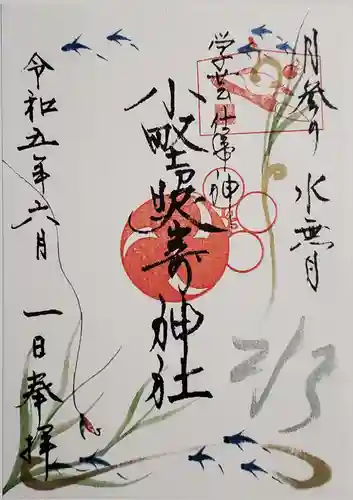 月参り 水無月
学芸仕事神
小野照嵜神社
令和五年六月 一日奉拝
2/3